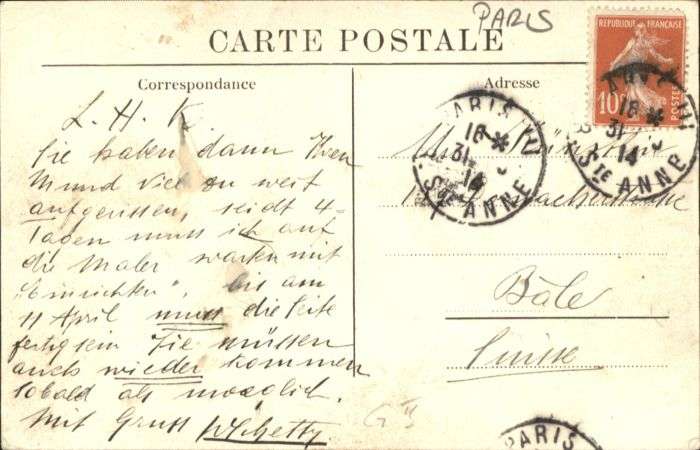 PARIS
CARTE POSTALE
REPUBLIQUE FRANÇAISE
10c
POSTES
Correspondance
L. H. K
Sie haben dann Ihren
Mund viel zu weit
aufgerissen, seidt 4-
Tagen muss ich auf
die Maler warten mit
"Einrichten", bis am
11 April muss die Seite
fertig sein Sie müssen
auch wieder kommen
sobald als moeglich.
Mit Gruss
Adresse
PARIS XV
16 *
31
14
STE ANNE
PARIS XV
16 *
31
14
STE ANNE
Bâle
Suisse
PARIS